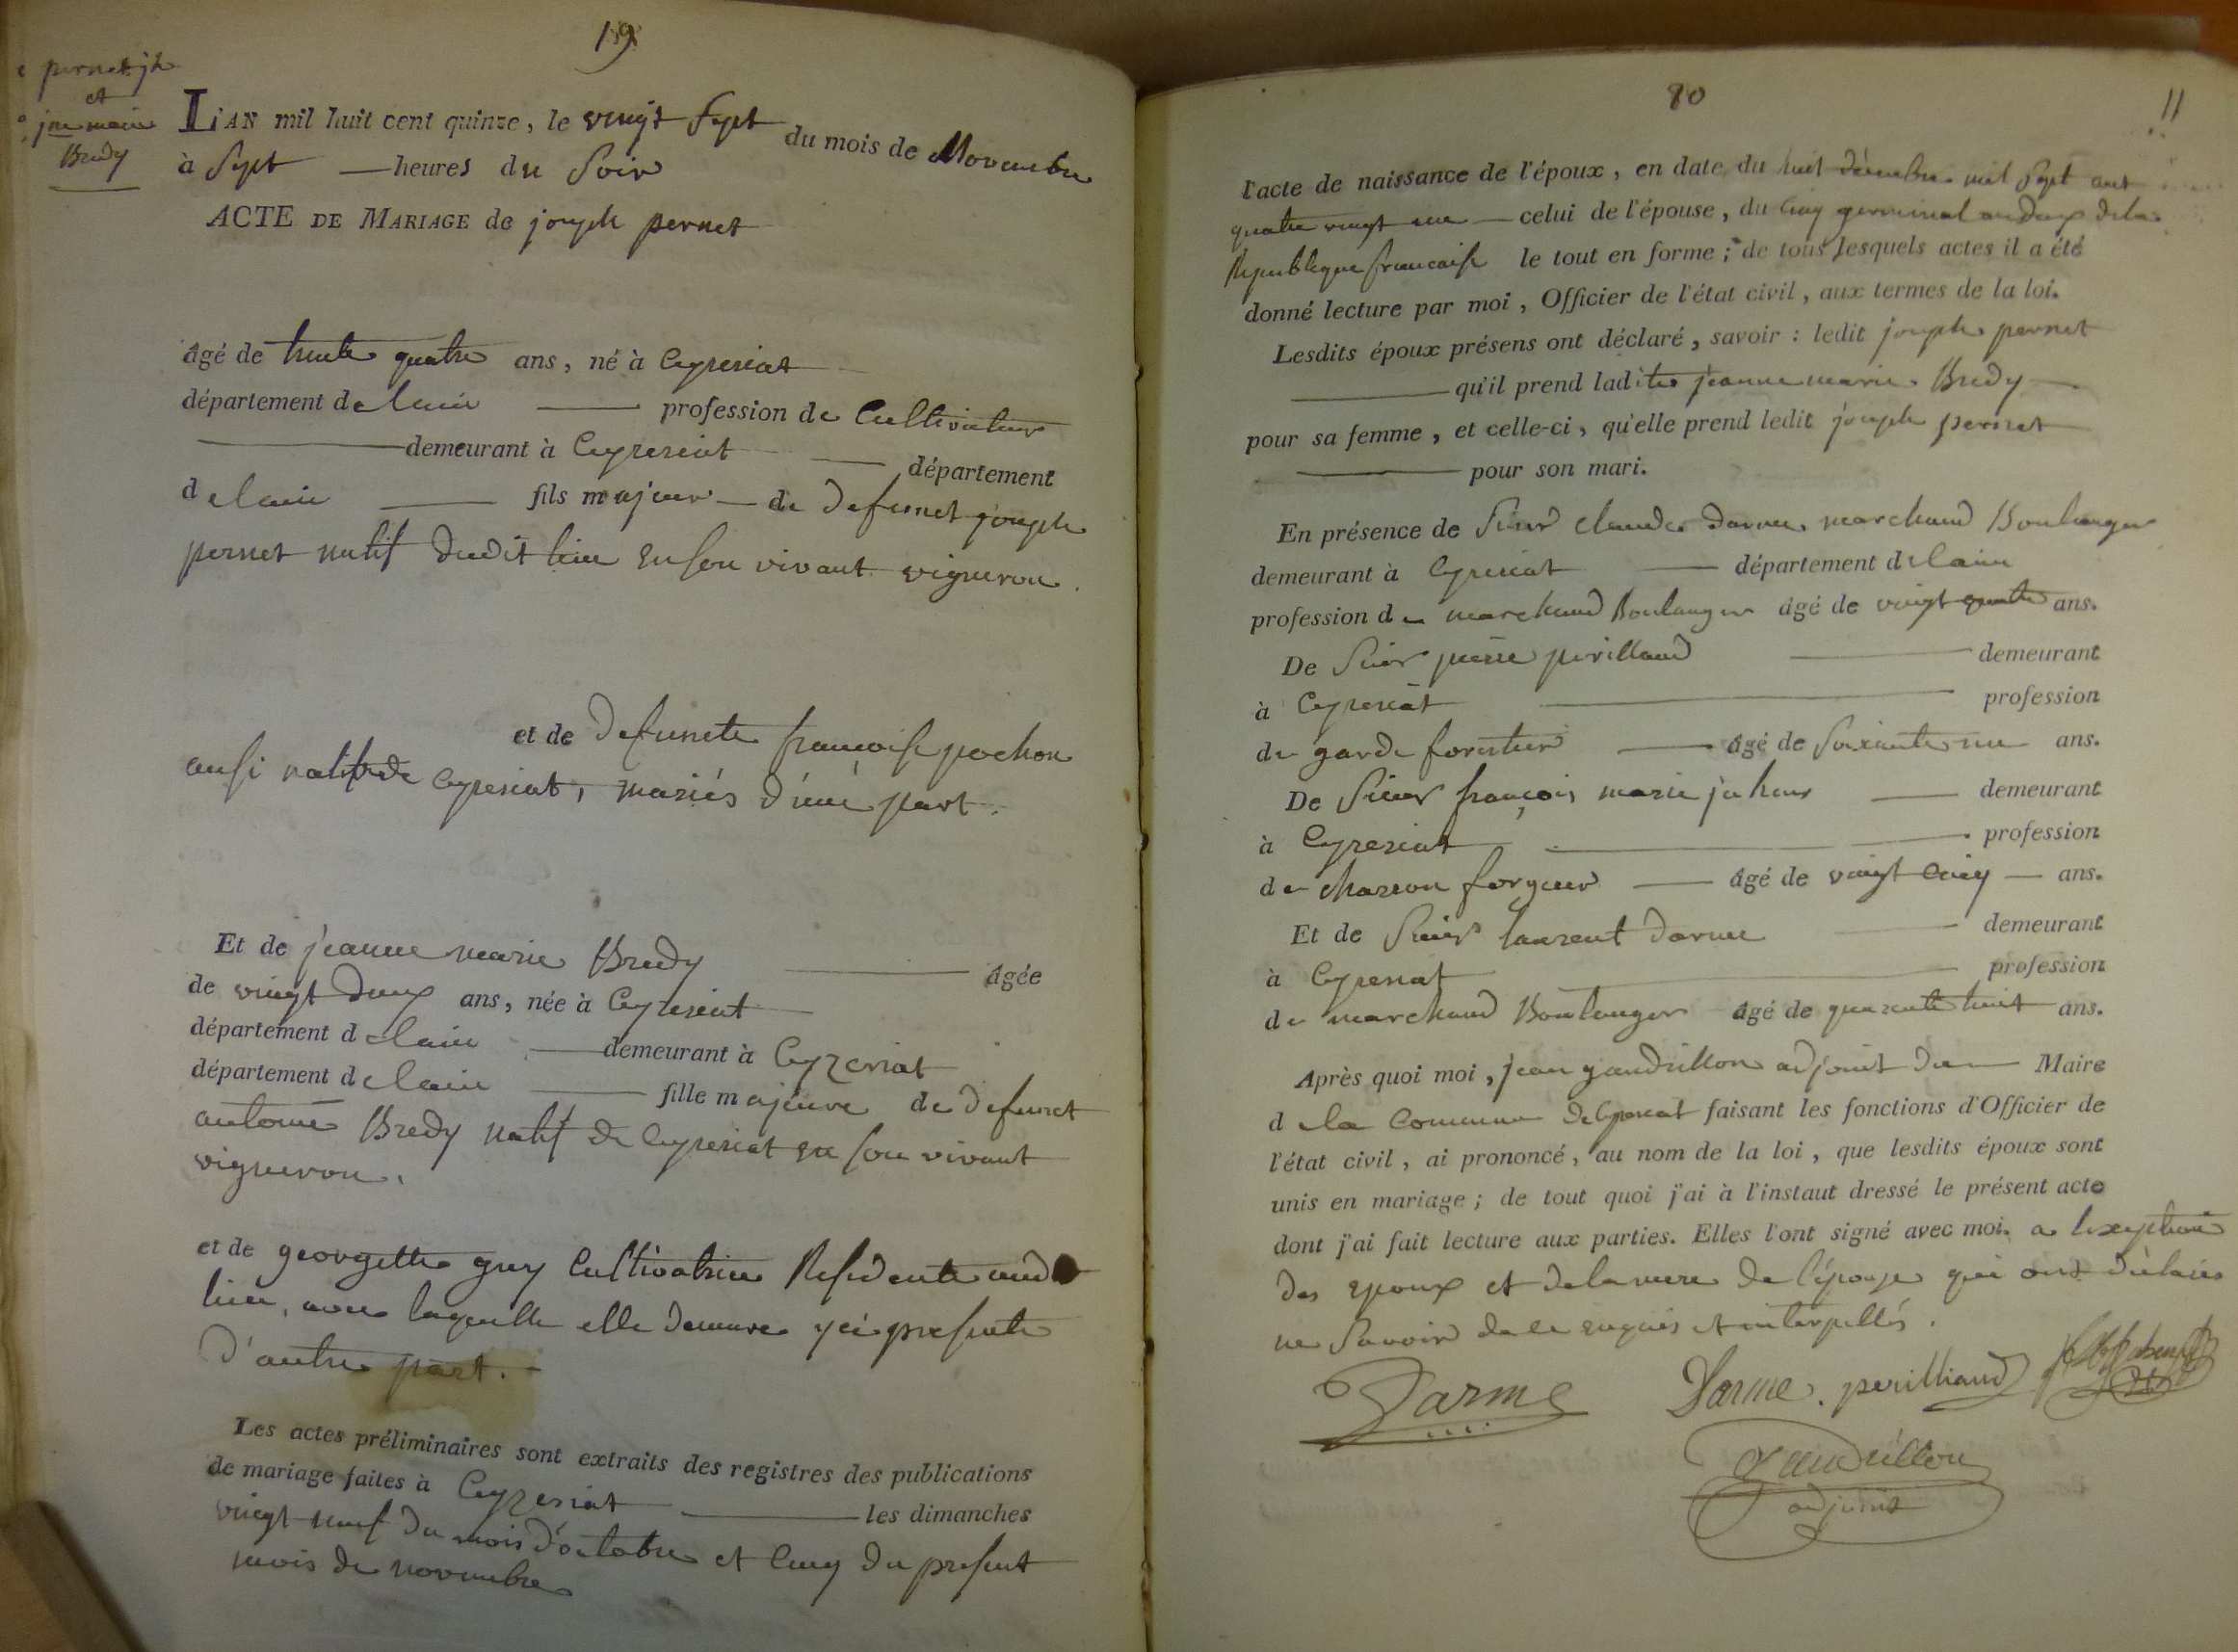 19
pernet jh
et
jne marie
Bredy
L'AN mil huit cent quinze, le vingt sept du mois de Novembre
à sept heures du soir
ACTE DE MARIAGE de joseph pernet
âgé de trente quatre ans, né à Ceyzeriat
département de lain profession de Cultivateur
demeurant à Ceyzeriat département
de lain fils majeur de defunct joseph
pernet natif dudit lieu en son vivant vigneron.
et de defuncte françoise pochon
ausi native de Ceyzeriat, mariés d'une part.
Et de jeanne marie Bredy âgée
de vingt deux ans, née à Ceyzeriat
département de lain demeurant à Ceyzeriat
département de lain fille majeure de defunct
antoine Bredy natif de Ceyzeriat en son vivant
vigneron.
et de georgette guy Cultivatrice Residente aud
lieu, avec laquelle elle demeure yci presente
d'autre part.
Les actes préliminaires sont extraits des registres des publications
de mariage faites à Ceyzeriat les dimanches
vingt neuf du mois d'octobre et cinq du present
mois de novembre
80
11
l'acte de naissance de l'époux, en date du huit décembre mil sept cent
quatre vingt une celui de l'épouse, du cinq germinal an deux de la
Republique francaise le tout en forme ; de tous lesquels actes il a été
donné lecture par moi, Officier de l'état civil, aux termes de la loi.
Lesdits époux présens ont déclaré, savoir : ledit joseph pernet
qu'il prend ladite jeanne marie Bredy
pour sa femme, et celle-ci, qu'elle prend ledit joseph pernet
pour son mari.
En présence de Sieur claude darme marchand Boulanger
demeurant à Ceyzeriat département de lain
profession de marchand Boulanger âgé de vingt quatre ans.
De Sieur pierre perilliaud demeurant
à Ceyzeriat profession
de garde forestier âgé de soixante un ans.
De Sieur françois marie jaheur demeurant
à Ceyzeriat profession
de charron forgeur âgé de vingt cinq ans.
Et de Sieur laurent darme demeurant
à Ceyzeriat profession
de marchand Boulanger âgé de quarante huit ans.
Après quoi moi, jean gaudrillon adjoint du Maire
de la Commune de Ceyzeriat faisant les fonctions d'Officier de
l'état civil, ai prononcé, au nom de la loi, que lesdits époux sont
unis en mariage ; de tout quoi j'ai à l'instant dressé le présent acte
dont j'ai fait lecture aux parties. Elles l'ont signé avec moi. a lexeption
des epoux et de la mere de l'épouse qui ont déclaré
ne savoir de ce enquis et interpellés.
Darme Darme perilliaud
Gaudrillon
adjoint